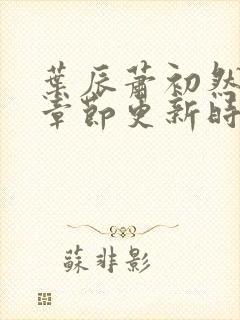 葉辰蕭初然
章節更新時
蘇非影